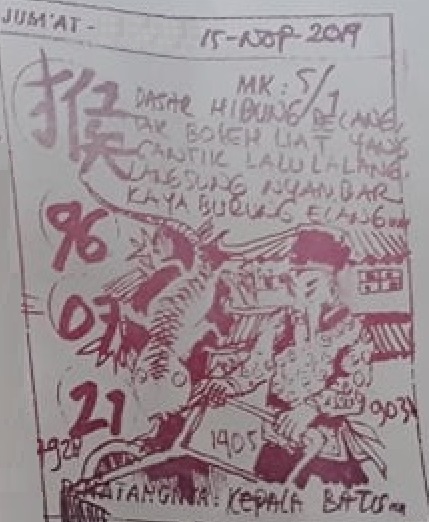 JUM'AT -
15-NOP-2019
MK: 5/1
猴
DASAR HIDUNG BELANG,
TAK BOLEH LIAT YANG
CANTIK LALU LALANG,
LANGSUNG NYAMBAR
KAYA BURUNG ELANG...
96
07
21
1905
KEPALA BATU